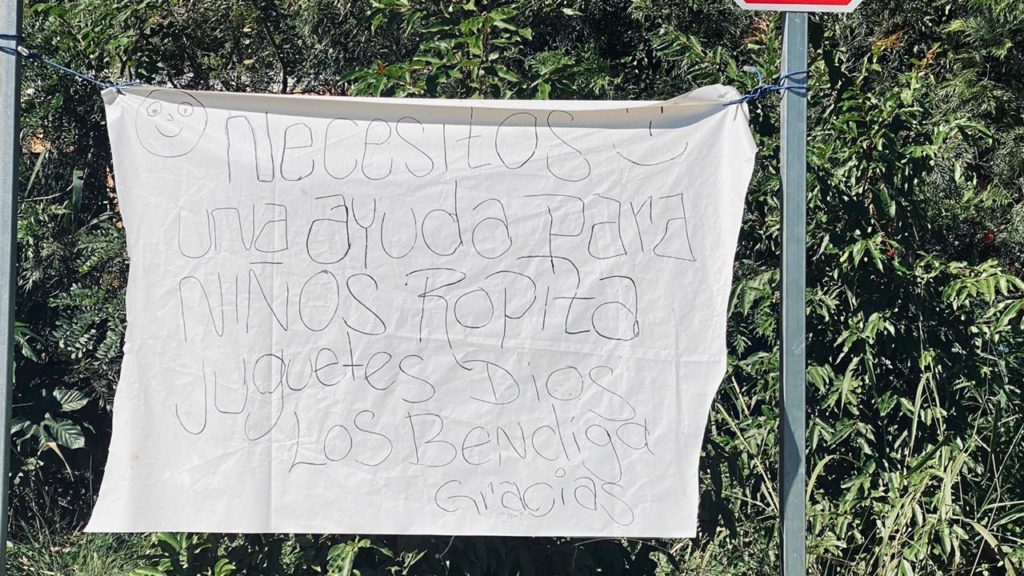 Necesitos
una ayuda para
NIÑOS Ropita
juguetes Dios
Los Bendiga
Gracias